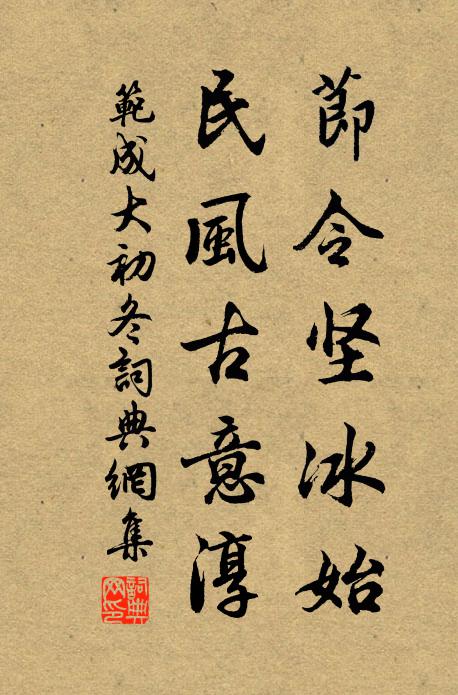 莭令坚冰始
民風古意淳
範成大初冬詞典網集
詞典网印